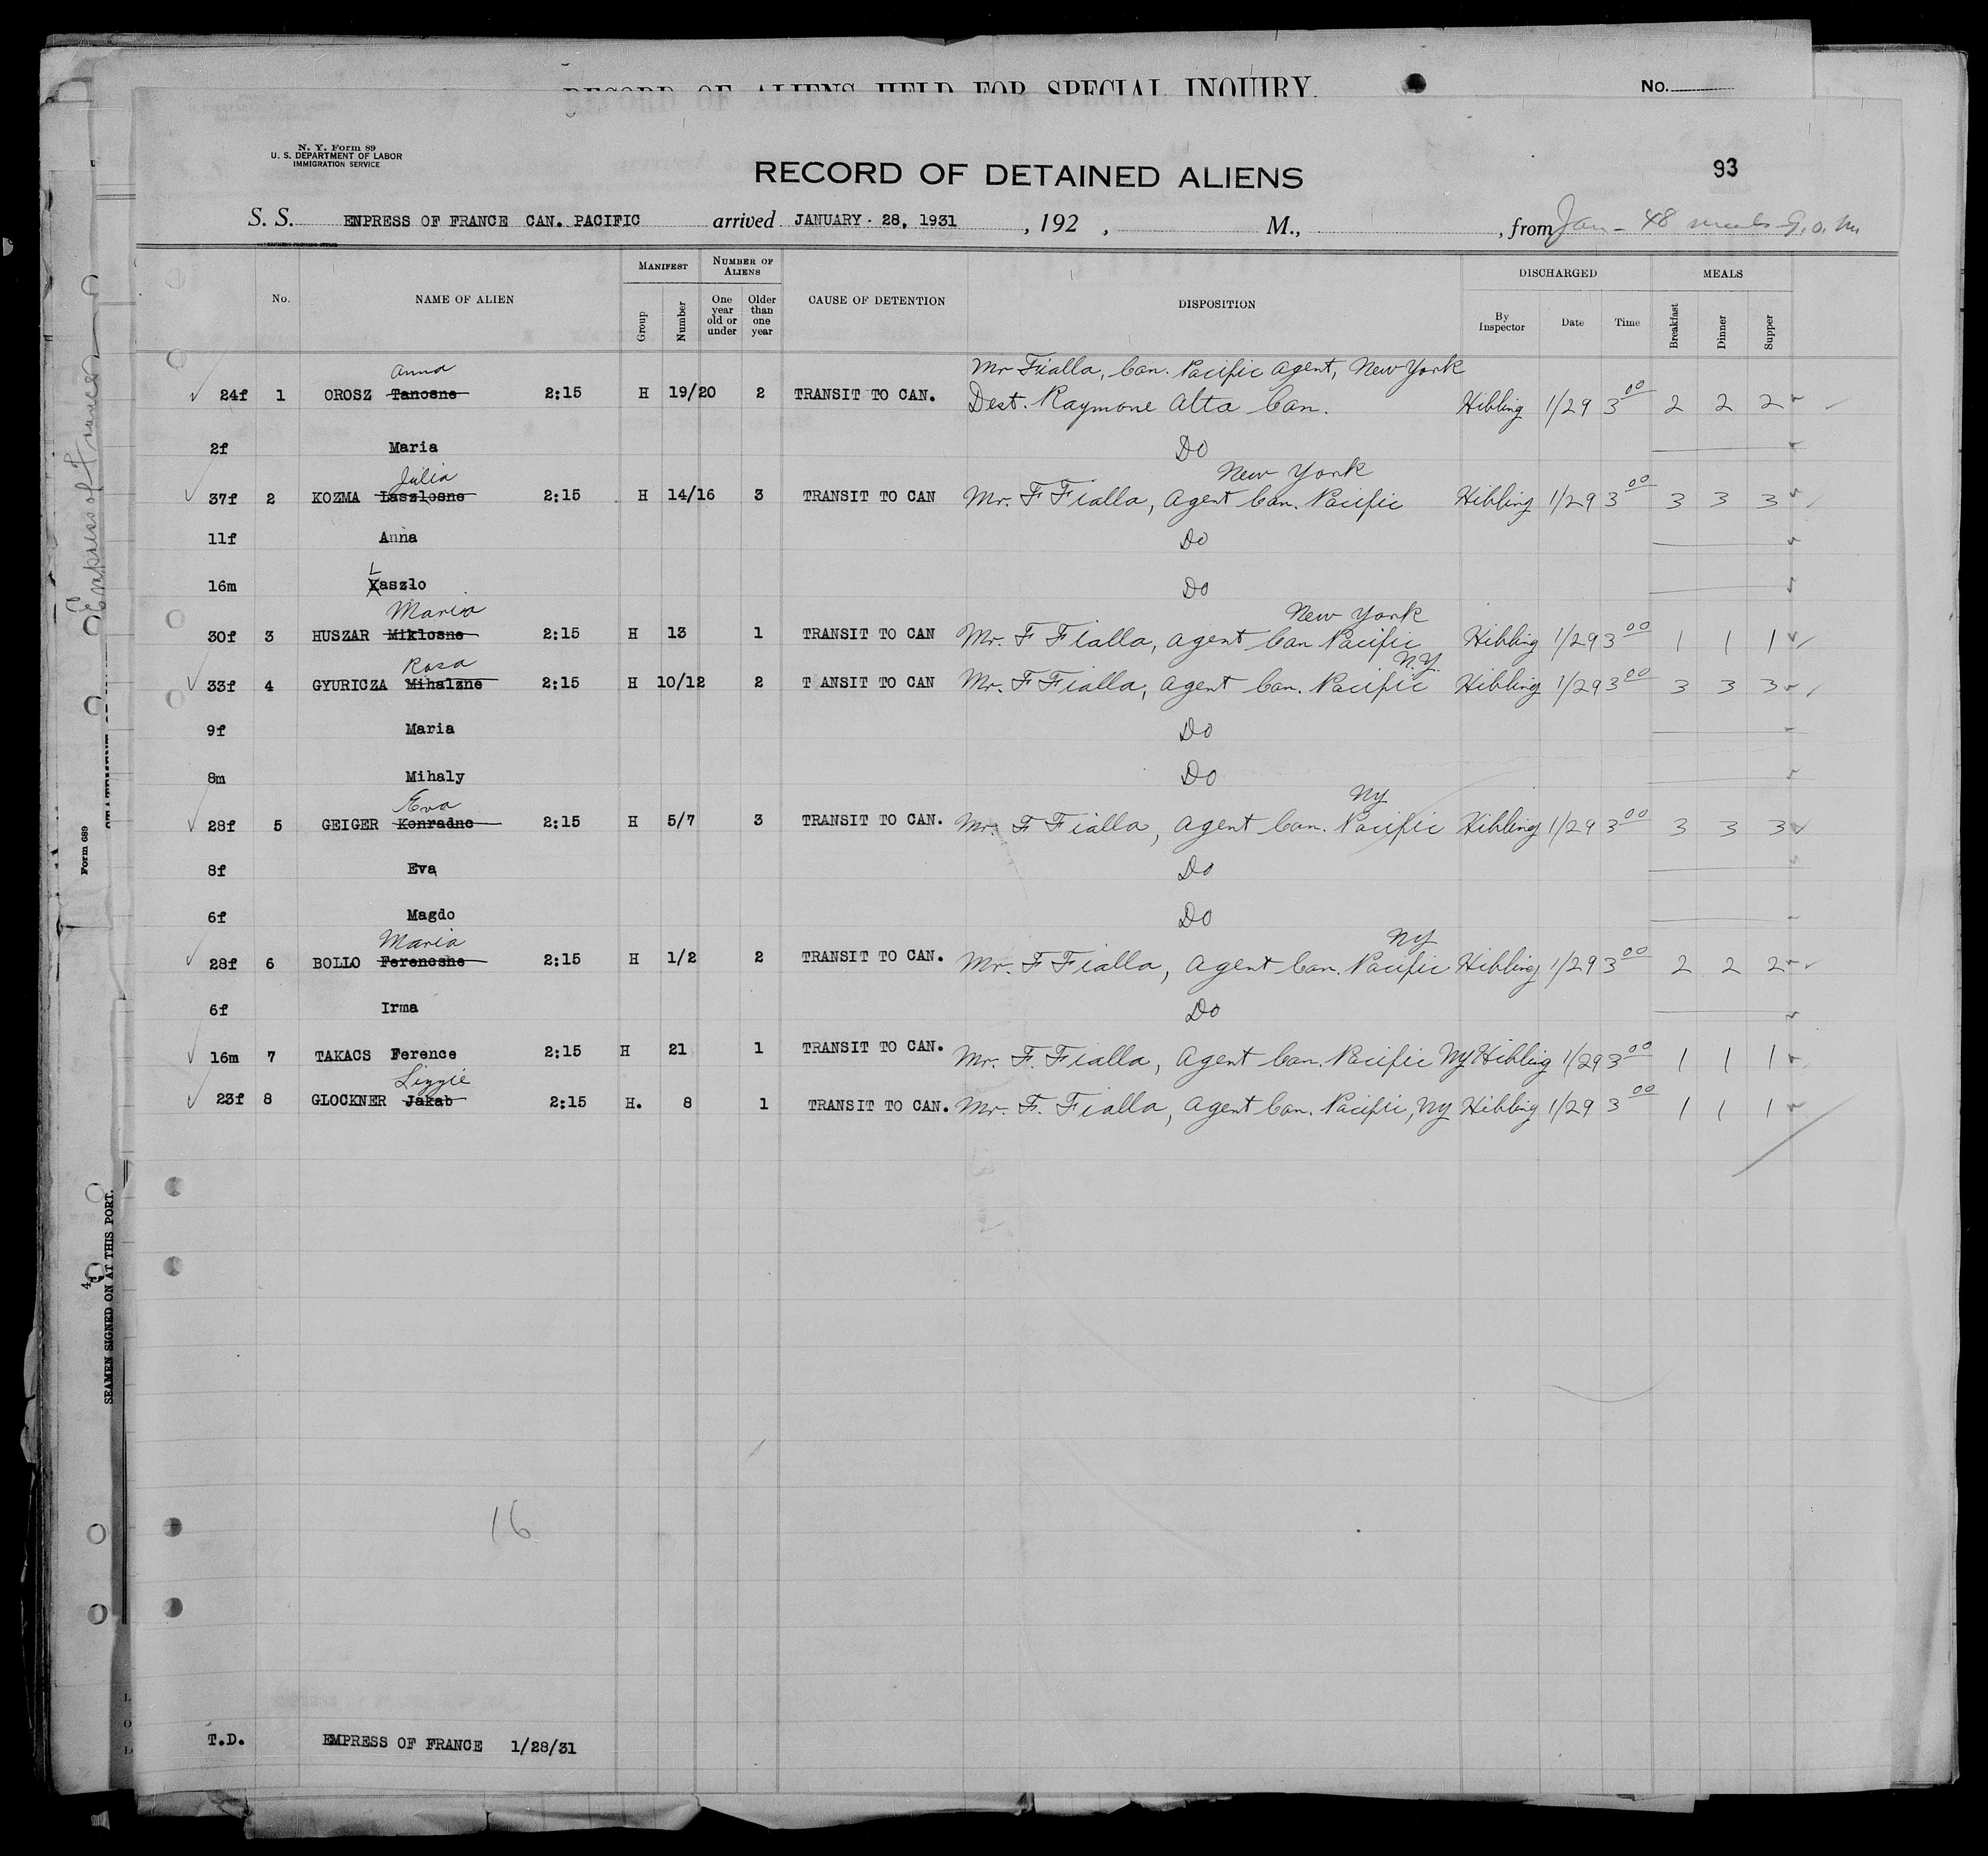 RECORD OF ALIENS HELD FOR SPECIAL INQUIRY.
No.
N. Y. Form 89
U. S. DEPARTMENT OF LABOR
IMMIGRATION SERVICE
RECORD OF DETAINED ALIENS
93
S. S. ENPRESS OF FRANCE CAN. PACIFIC arrived JANUARY 28, 1931 , 192 , M., , from Jan - 48 meals G.O.M.
No. NAME OF ALIEN MANIFEST Group Number NUMBER OF ALIENS One year old or under Older than one year CAUSE OF DETENTION DISPOSITION DISCHARGED By Inspector Date Time MEALS Breakfast Dinner Supper
Anna Mr Fialla, Can. Pacific Agent, New York
24f 1 OROSZ Tanosne 2:15 H 19/20 2 TRANSIT TO CAN. Dest. Raymone Alta Can. Hibling 1/29 3 00 2 2 2
2f Maria Do
Julia New York
37f 2 KOZMA Laszlosne 2:15 H 14/16 3 TRANSIT TO CAN Mr. F Fialla, Agent Can. Pacific Hibling 1/29 3 00 3 3 3
11f Anna Do
L
16m Kaszlo Do
Maria New York
30f 3 HUSZAR Miklosne 2:15 H 13 1 TRANSIT TO CAN Mr. F Fialla, Agent Can Pacific Hibling 1/29 3 00 1 1 1
Rosa N.Y.
33f 4 GYURICZA Mihalzne 2:15 H 10/12 2 T ANSIT TO CAN Mr. F Fialla, Agent Can. Pacific Hibling 1/29 3 00 3 3 3
9f Maria Do
8m Mihaly Do
Eva Ny
28f 5 GEIGER Konradne 2:15 H 5/7 3 TRANSIT TO CAN. Mr. F Fialla, Agent Can. Pacific Hibling 1/29 3 00 3 3 3
8f Eva Do
6f Magdo Do
Maria Ny
28f 6 BOLLO Ferencsne 2:15 H 1/2 2 TRANSIT TO CAN. Mr. F Fialla, Agent Can. Pacific Hibling 1/29 3 00 2 2 2
6f Irma Do
16m 7 TAKACS Ference 2:15 H 21 1 TRANSIT TO CAN. Mr. F. Fialla, Agent Can. Pacific Ny Hibling 1/29 3 00 1 1 1
Lizzie
23f 8 GLOCKNER Jakab 2:15 H. 8 1 TRANSIT TO CAN. Mr. F. Fialla, Agent Can. Pacific, Ny Hibling 1/29 3 00 1 1 1
16
T.D. EMPRESS OF FRANCE 1/28/31
Empress of France
Form 689
SEAMEN SIGNED ON AT THIS PORT.